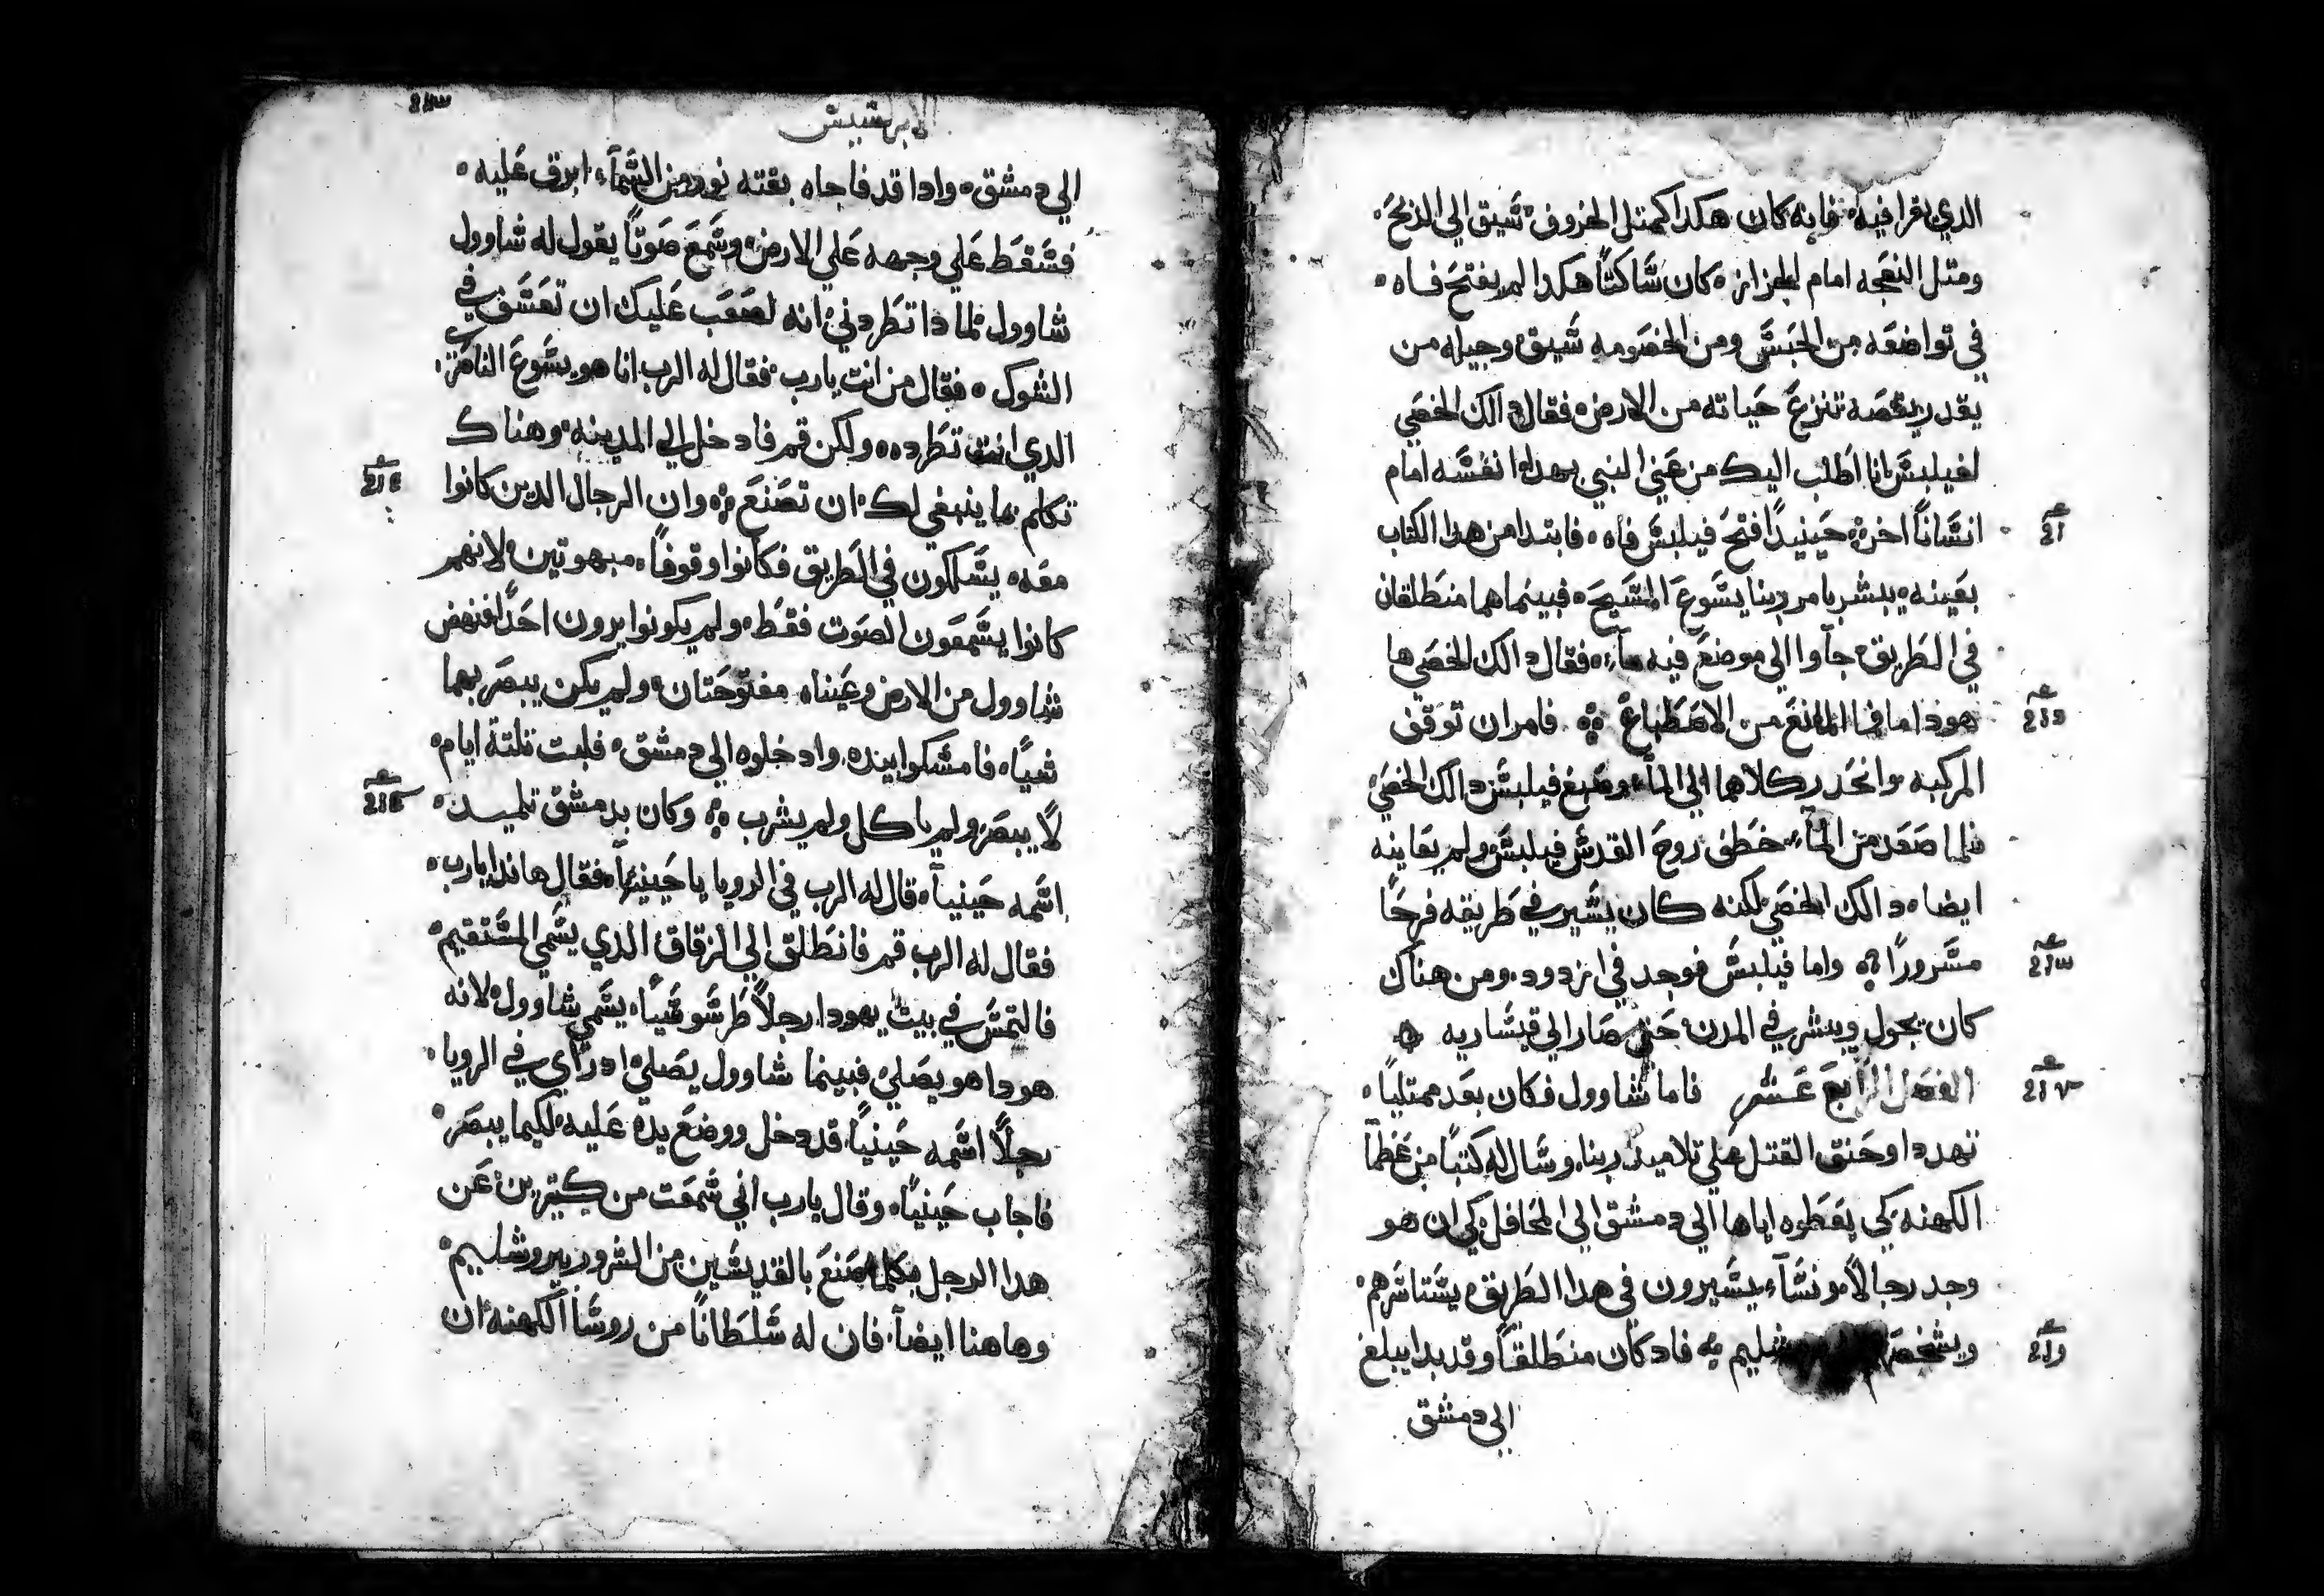 الدي يقرا فيه فانه كان هكدا كمتل الخروف شيق الي الدبح
ومتل النعجه امام الجزاز كان شاكتًا هكدا لم يفتح فاه
في تواضعه من الحبش ومن الخصومه شيق وجيله من
يقدر يقصه تنزع حياته من الارض فقال دالك الخصي
لفيلبش انا اطلب اليك من عني النبي بهدا انفشه امام
انشانًا اخر حينيدًا فتح فيلبش فاه فابتدا من هدا الكتاب
بعينه يبشر بامر ربنا يشوع المشيح فبينما هما منطلقان
في الطريق جآوا الي موضع فيه مآء فقال دالك الخصي ها
هودا ما فما المانع من الاصطباغ فامر ان توقف
المركبه وانحدر كلاهما الي المآء وصبغ فيلبش دالك الخصي
فلما صعد من المآء خطف روح القدش فيلبش ولم يعاينه
ايضا دالك الخصي لكنه كان يشير في طريقه فرحًا
مشرورًا واما فيلبش فوجد في ازدود ومن هناك
كان يجول ويبشر في المدن حتي صار الي قيشاريه
الفصل الرابع عشر فاما شاوول فكان بعد ممتليًا
تهددا وحنق القتل علي تلاميد ربنا وشال له كتبًا من عظمآ
الكهنه كي يعطوه اياها الي دمشق الي المحافل كي ان هو
وجد رجالًا ونشآء يشيرون في هدا الطريق يشتاشرهم
ويشخص شليم فاد كان منطلقًا وقد بدا يبلغ
الي دمشق
الابرشيش
الي دمشق وادا قد فاجاه بغته نور من الشمآء ابرق عليه
فشقط علي وجهه علي الارض وشمع صوتًا يقول له شاوول
شاوول لما دا تطردني انه لصعب عليك ان تعشق في
الشوك فقال من انت يارب فقال له الرب انا هو يشوع الناصري
الدي انت تطرده ولكن قم فادخل الي المدينه وهناك
تكلم بما ينبغي لك ان تصنع وان الرجال الدين كانوا
معه يشلكون في الطريق فكانوا وقوفًا مبهوتين لانهم
كانوا يشمعون الصوت فقط ولم يكونوا يرون احدًا فنهض
شاوول من الارض وعيناه مفتوحتان ولم يكن يبصر بهما
شيًا فامشكوا بيده وادخلوه الي دمشق فلبت تلتة ايام
لا يبصر ولم ياكل ولم يشرب وكان بدمشق تلميد
اشمه حينيآ قال له الرب في الرويا يا حينيآ فقال هاندا يارب
فقال له الرب قم فانطلق الي الزقاق الدي يشمي المشتقيم
فالتمش في بيت يهودا رجلًا طرشوشيًا يشمي شاوول لانه
هودا هو يصلي فبينما شاوول يصلي اد راي في الرويا
رجلًا اشمه حينيآ قد دخل ووضع يده عليه لكيما يبصر
فاجاب حينيآ وقال يارب اني شمعت من كتيرين عن
هدا الرجل بكلما صنع بالقديشين من الشرور بيروشليم
وهاهنا ايضآ فان له شلطانًا من روشا الكهنه ان